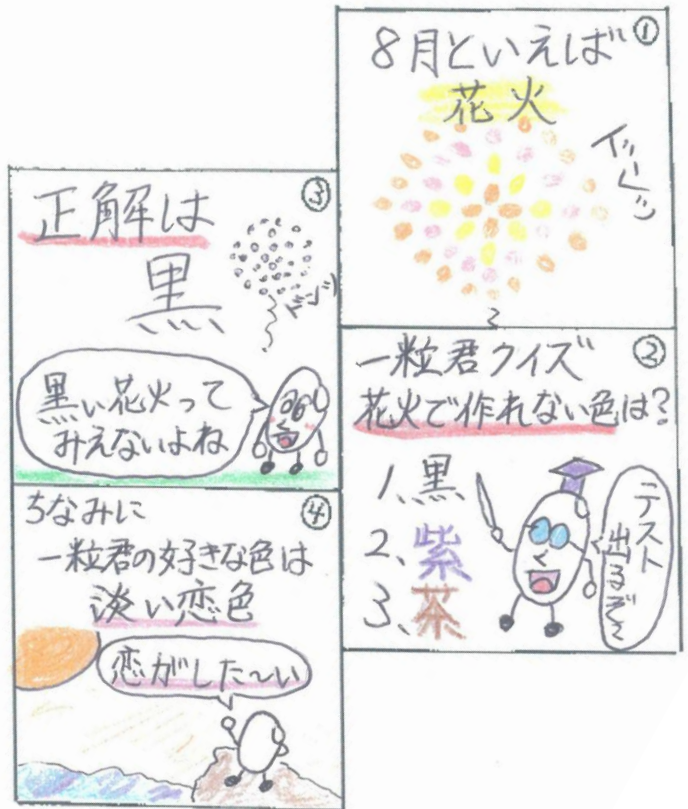 ①
8月といえば
花火
②
一粒君クイズ
花火で作れない色は?
1、黒
2、紫
3、茶
テスト
出るぞ〜
③
正解は
黒
黒い花火って
みえないよね
④
ちなみに
一粒君の好きな色は
淡い恋色
恋がした〜い